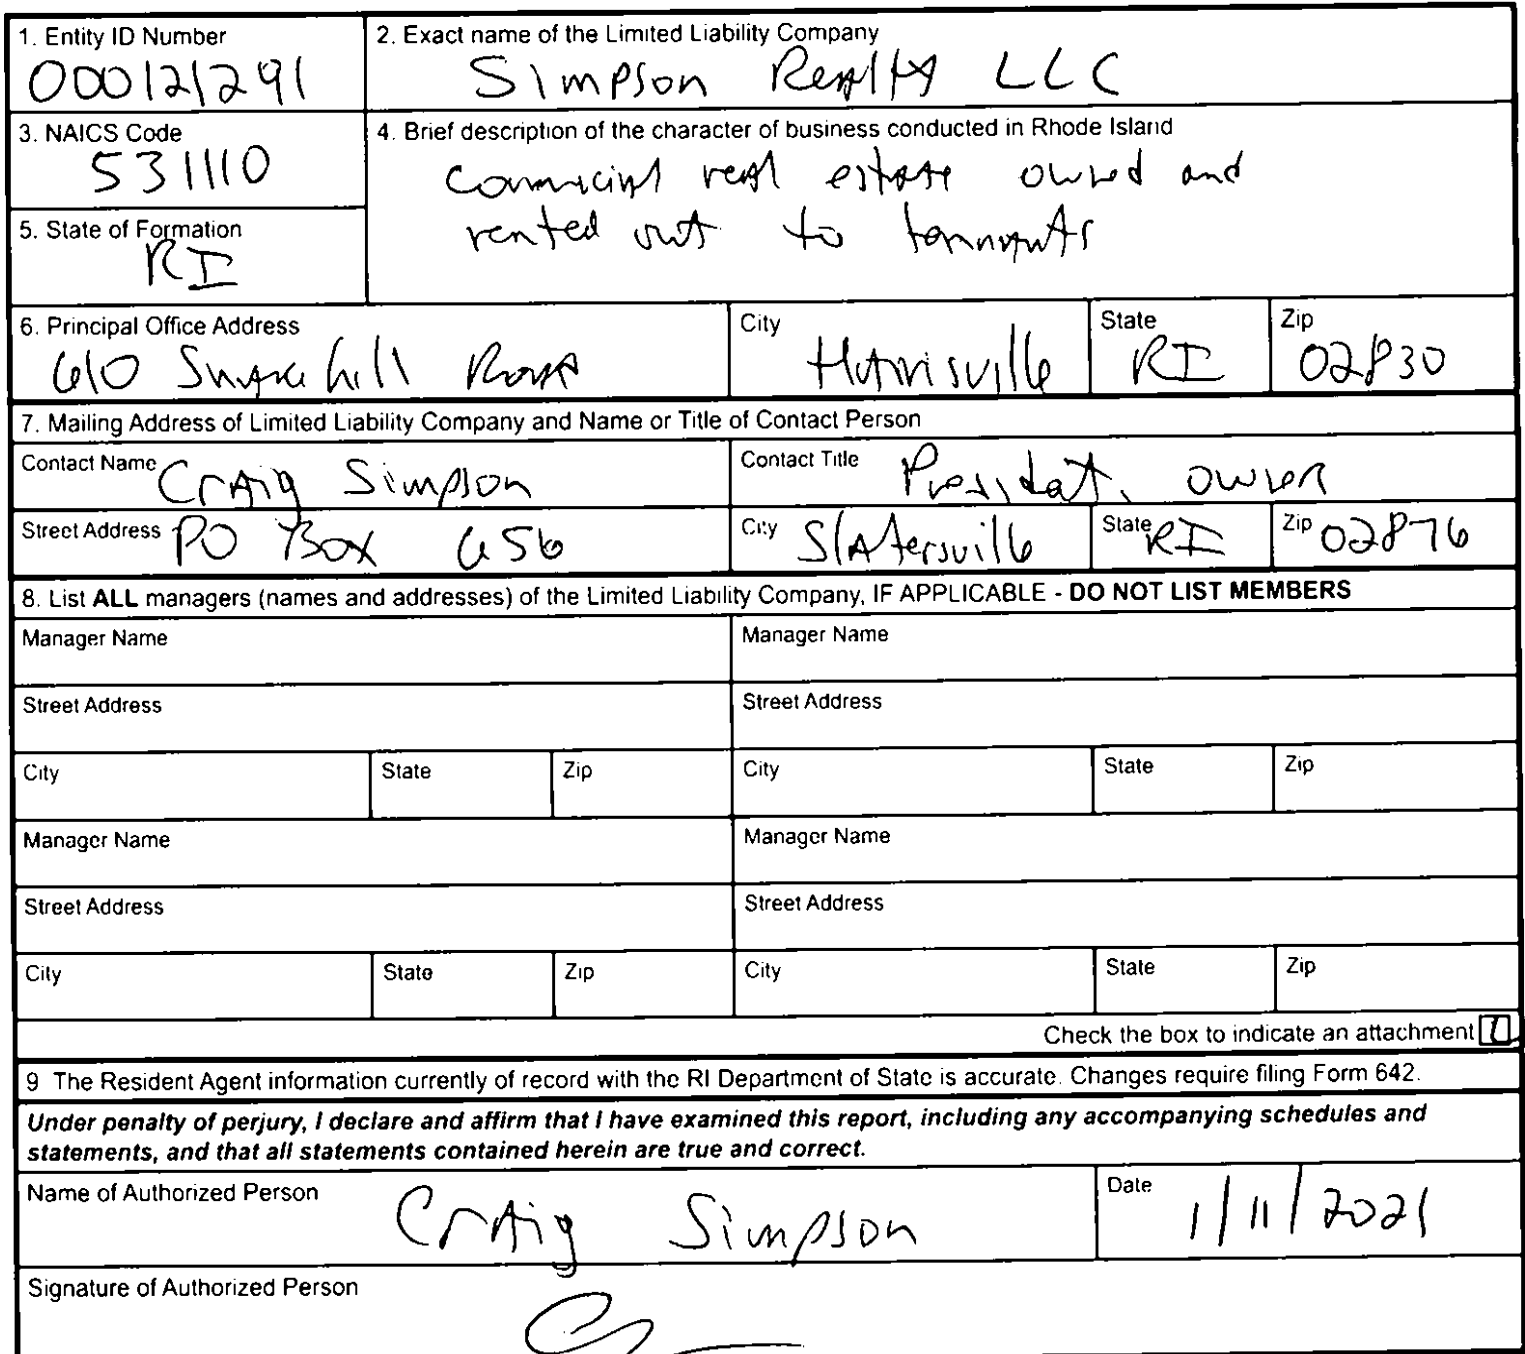 1. Entity ID Number
000121291
2. Exact name of the Limited Liability Company
Simpson Realty LLC
3. NAICS Code
531110
4. Brief description of the character of business conducted in Rhode Island
commercial real estate owned and
rented out to tennants
5. State of Formation
RI
6. Principal Office Address
610 Snake hill Road
City
Harrisville
State
RI
Zip
02830
7. Mailing Address of Limited Liability Company and Name or Title of Contact Person
Contact Name Craig Simpson
Contact Title President, owner
Street Address PO Box 656
City Slatersville
State RI
Zip 02876
8. List ALL managers (names and addresses) of the Limited Liability Company, IF APPLICABLE - DO NOT LIST MEMBERS
Manager Name
Manager Name
Street Address
Street Address
City State Zip City State Zip
Manager Name
Manager Name
Street Address
Street Address
City State Zip City State Zip
Check the box to indicate an attachment
9 The Resident Agent information currently of record with the RI Department of State is accurate. Changes require filing Form 642.
Under penalty of perjury, I declare and affirm that I have examined this report, including any accompanying schedules and
statements, and that all statements contained herein are true and correct.
Name of Authorized Person Craig Simpson
Date 1/11/2021
Signature of Authorized Person